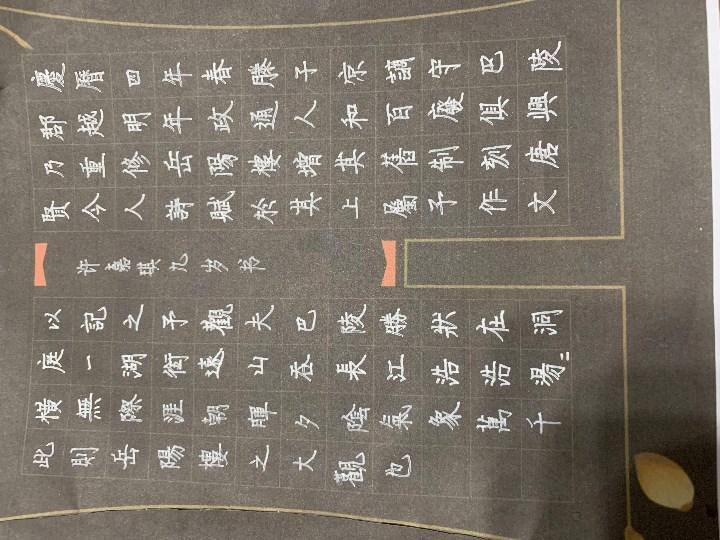 慶曆四年春滕子京謫守巴陵
郡越明年政通人和百廢俱興
乃重修岳陽樓增其舊制刻唐
賢今人詩賦於其上屬予作文
许嘉琪九岁书
以記之予觀夫巴陵勝狀在洞
庭一湖銜遠山吞長江浩浩湯〻
橫無際涯朝暉夕陰氣象萬千
此則岳陽樓之大觀也